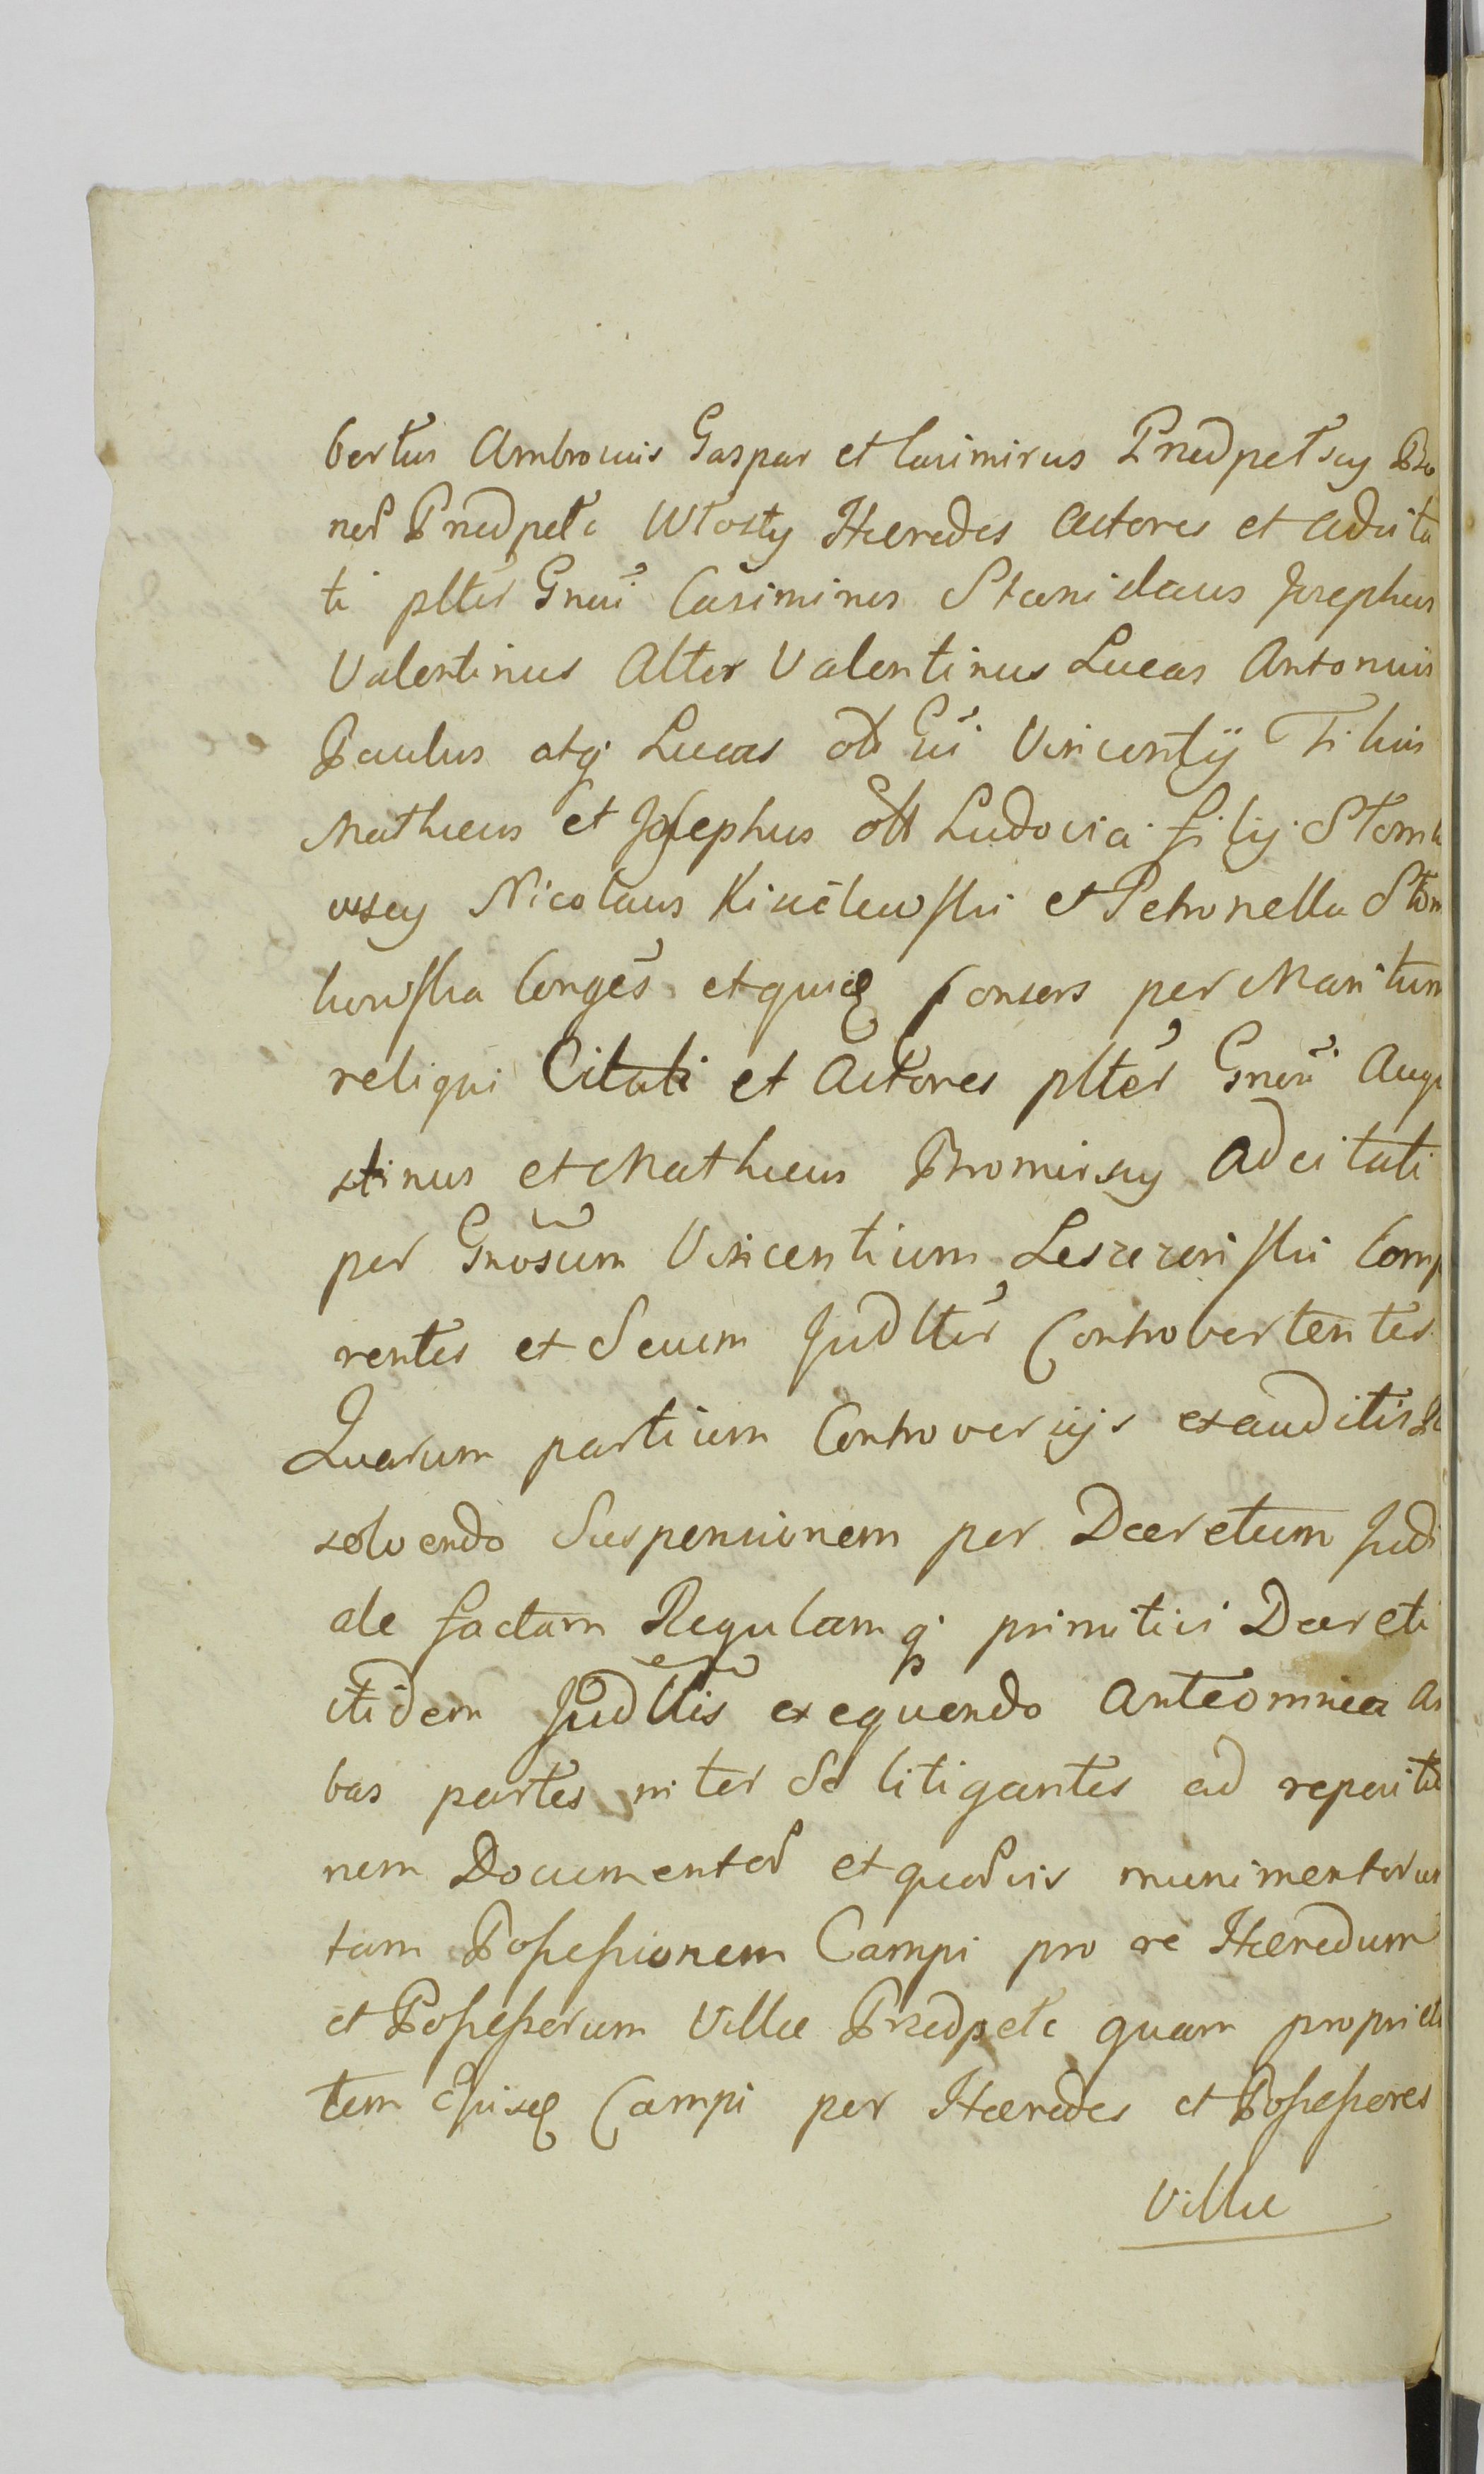 bertus Ambrosius Gaspar et Casimirus Przedpełscy Bo
nor Przedpełe Włosty Hæredes Actores et Adcita
ti plter Gnosi Casimirus Stanislaus Josephus
Valentinus Alter Valentinus Lucas Antonius
Paulus atq Lucas olt Gsi Vincentÿ Filius
Mathæus et Josephus olt Ludovici filÿ Stom
wscy Nicolaus et Petronella Stom
kowska Conges et quidē Consors per Maritum
reliqui Citati et Actores plter Gnosi Augu
stinus et Mathæus Bromirscy Adcitati
per Gnosum Vincentium Leszczenski Comp
rentes et Secum Judlter Controvertentes
Quarum partium Controversÿs exauditis
solvendo Suspensionem per Decretum Judi
ale factam Regulamq primitivi Decreti
itidem Judllis exequendo Anteomnia Am
bas partes inter Se litigantes ad repositio
nem Documentor et quorvis munimentorum
tam Possessionem Campi pro re Hæredum
et Possessorum Villæ Przedpełe quam proprieta
tem Ejusdē Campi per Hæredes et Possessores
Villæ